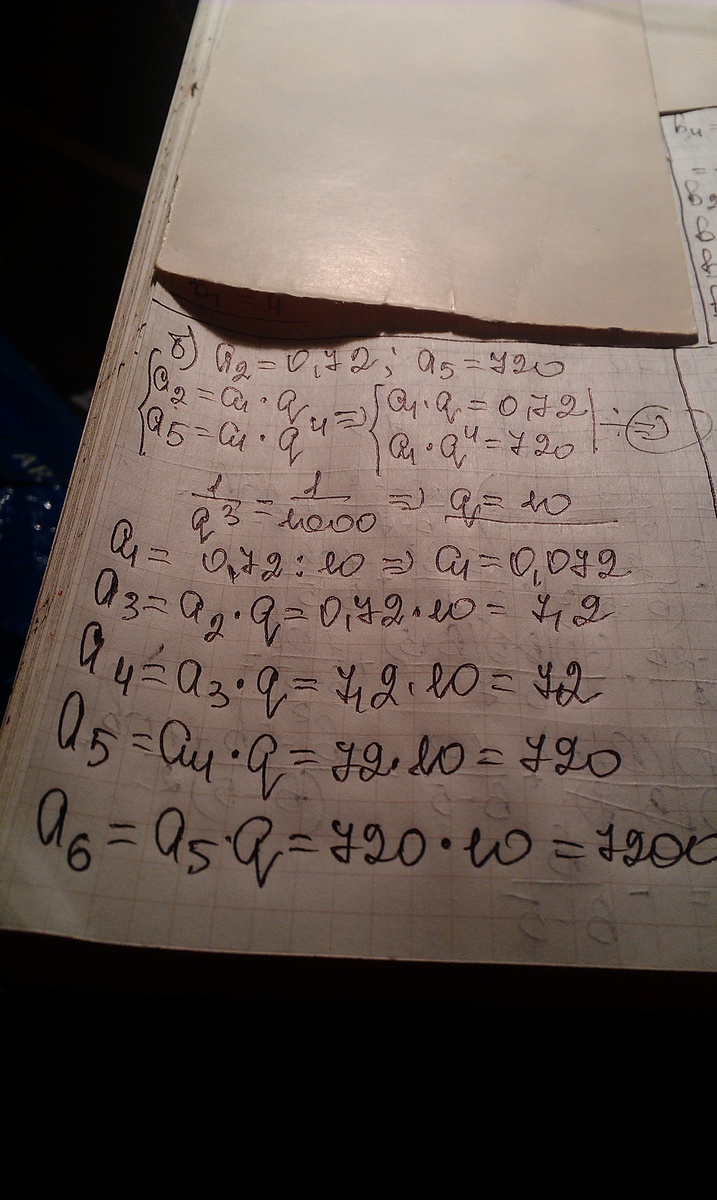 б) a₂ = 0,72; a₅ = 720
{a₂ = a₁ · q
a₅ = a₁ · q⁴ ⇒ {a₁ · q = 0,72
a₁ · q⁴ = 720 | ÷ ⇒
1/q³ = 1/1000 ⇒ q = 10
a₁ = 0,72 : 10 ⇒ a₁ = 0,072
a₃ = a₂ · q = 0,72 · 10 = 7,2
a₄ = a₃ · q = 7,2 · 10 = 72
a₅ = a₄ · q = 72 · 10 = 720
a₆ = a₅ · q = 720 · 10 = 7200